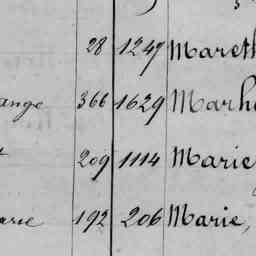 28 1247 Mareth
ange 366 1629 Marh
209 1114 Marie
arie 192 206 Marie,